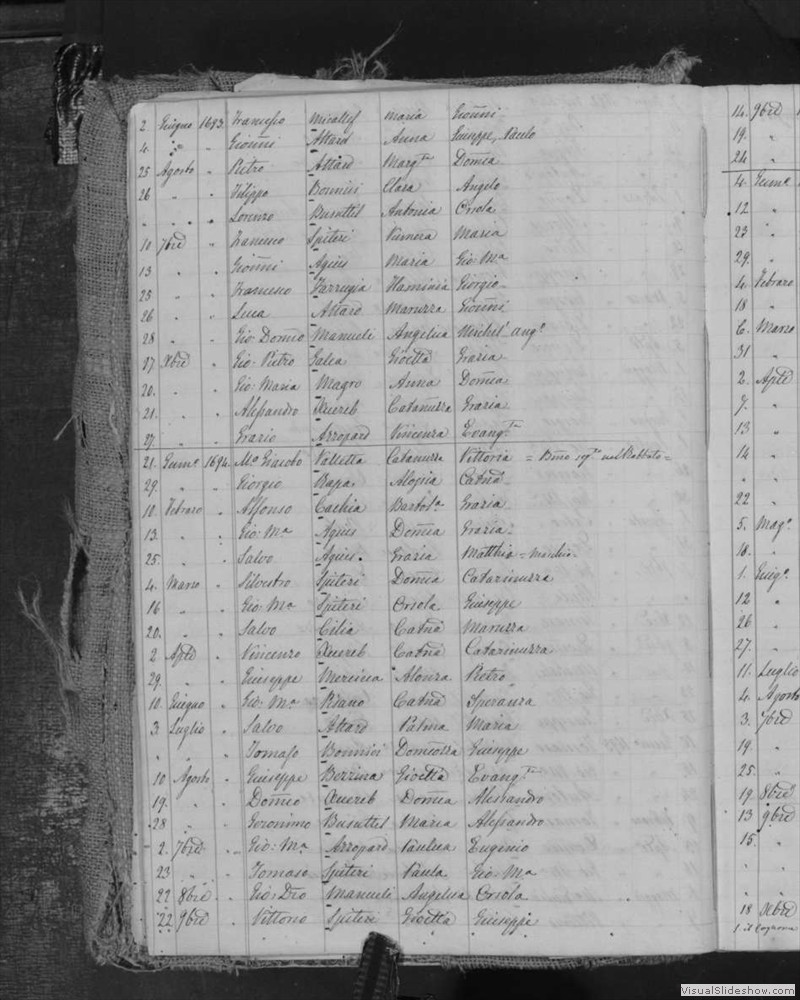 2 Giugno 1693 Francesco Micallef Maria Gionni
4 " " Gionni Attard Anna Giuseppe, Paulo
25 Agosto " Pietro Attard Marg.ta Domca
26 " " Filippo Bonnici Clara Angelo
" " " Lorenzo Busuttil Antonia Orsola
10 7bre " Francesco Spiteri Maria
13 " " Gionni Agius Maria Gio: Ma
23 " " Francesco Farrugia Flaminia Giorgio
26 " " Luca Attard Maruzza Gionni
28 " " Gio: Domco Manueli Angelica Michel' Ang.o
17 Xbre " Gio: Pietro Galea Gioetta Grazia
20. " " Gio: Maria Magro Anna Domca
21. " " Alessandro Xuereb Catanuzza Grazia
27. " " Grazio Azzopard Vincenza Evang.ta
21. Genn.o 1694. M.o Giacobo Valletta Catanuzza Vittoria
29. " " Giorgio Rapa Aloysia Catna
10 Febraro " Alfonso Cachia Bartol.a Grazia
13. " " Gio: Ma Agius Domca Grazia
25. " " Salvo Agius. Grazia Matthia
4. Marzo " Silvestro Spiteri Domca Catarinuzza
16 " " Gio: Ma Spiteri Orsola Giuseppe
20. " " Salvo Cilia Catna Maruzza
2 Aple " Vincenzo Xuereb Catna Catarinuzza
29. " " Giuseppe Mercieca Alonza Pietro
10. Giugno " Gio: Ma Catna Speranza
3 Luglio " Salvo Attard Palma Maria
" " " Tomaso Bonnici Domcozza Giuseppe
10 Agosto " Giuseppe Bezzina Gioetta Evang.ta
19. " " Domco Xuereb Domca Alessandro
28 " " Geronimo Busuttil Maria Alessandro
2. 7bre " Gio: Ma Azzopard Paulica Eugenio
23 " " Tomaso Spiteri Paula Gio: Ma
22 8bre " Gio: Dco Manueli Angelica Orsola
22 9bre " Vittorio Spiteri Gioetta Giuseppe
14. 9bre
19. "
24 "
4. Genn.o
12 "
23 "
29. "
4. Febraro
18 "
6. Marzo
31 "
2. Aple
7. "
13 "
14 "
" "
22 "
5. Mag.o
18. "
1. Giug.o
12 "
26 "
27. "
11. Luglio
4. Agosto
3. 7bre
19. "
25. "
19 8bre
13 9bre
15. "
" "
" "
18 Xbre
VisualSlideshow.com